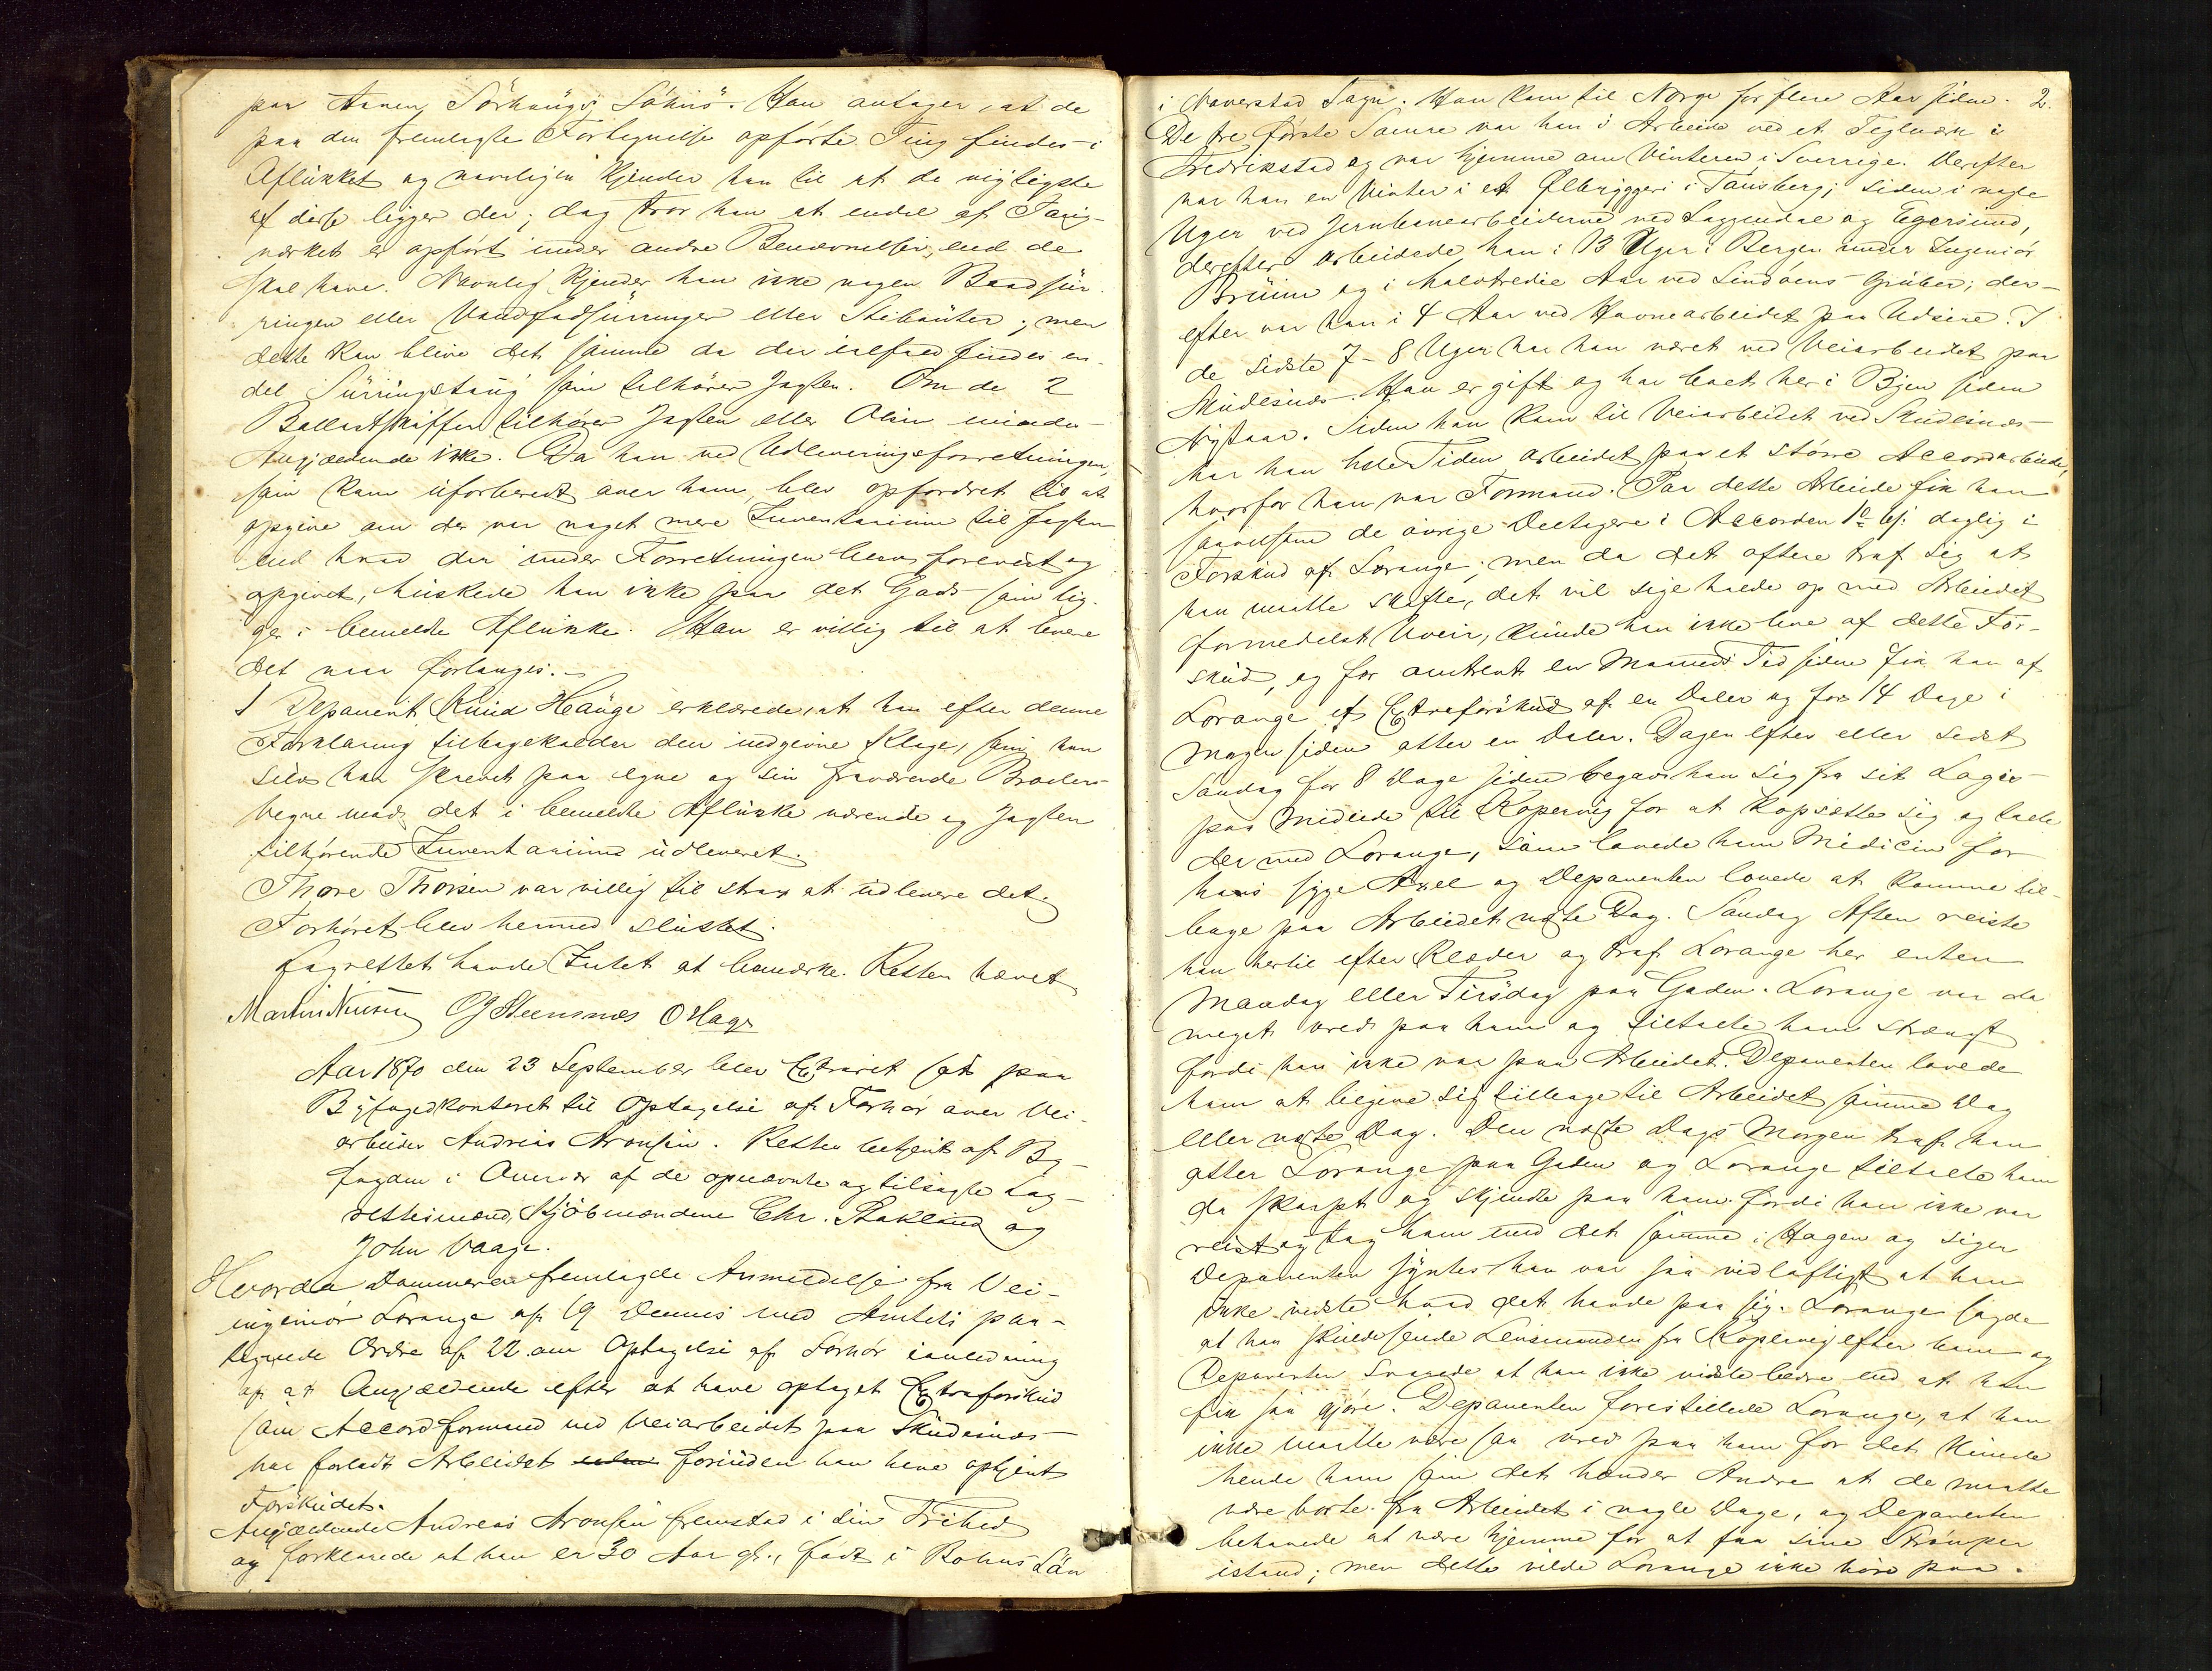 paa Aanen Sörhaugs Söhus. Han antager, at de
paa den fremlagte Fortegnelse opførte Ting findes i
Aflukket og navnligen kjender han til at de vigtigste
af disse ligger der; dog tror han at endel af Taug-
værket er opført under andre Benævnelser, end de
skal have. Navnlig kjender han ikke nogen Baadsur-
ringer eller Vandfadsurringer eller ; men
dette kan blive det samme da der ialfald findes en-
del Surringstaug som tilhører Jagten. Om de 2
Ballastskuffer tilhører Jagten eller Olin minder
Angjældende ikke. Da han ved Udleveringsforretningen,
som kom uforberedt over ham, blev opfordret til at
opgive om der var noget mere Inventarium til Jagten
end hvad der under Forretningen blev forevist og
opgivet, huskede han ikke paa det Gods som lig-
ger i bemeldte Aflukke. Han er villig til at levere
det naar forlanges.-
1 Deponent Knud Hauge erklærede, at han efter denne
Forklaring tilbagekalder den indgivne Klage, som han
selv har skrevet paa egne og sin fraværende Broders
Vegne mod det i bemeldte Aflukke værende og Jagten
tilhørende Inventarium udleveret.
Thore Thorsen var villig til strax at udlevere det.
Forhøret blev hermed sluttet.
Lagrettet havde Intet at bemærke. Retten hævet
Martin Nissen OJ Steensnæs O Hage
Aar 1870 den 23 September blev Extraret sat paa
Byfogedkontoret til Optagelse af Forhør over Vei-
arbeider Andreas Aronsen. Retten betjent af By-
fogden i Overvær af de opnævnte og tilsagte Lag-
rettesmænd, Kjøbmændene Chr. Stakland og
John Vaage.
Hvorda Dommeren fremlagde Anmeldelse fra Vei-
ingeniør Lorange af 19 Dennes med Amtets paa-
tegnede Ordre af 22 om Optagelse af Forhør ianledning
af at Angjældende efter at have optaget Extraforskud
som Accordformand ved Veiarbeidet paa Skudesnæs
har forladt Arbeidet foruden han have optjent
Forskudet.
Angjældende Andreas Aronsen fremstod i sin Frihed
og forklarede at han er 30 Aar gl., født i Bohus Län
i Naverstad Sogn. Han kom til Norge for flere Aar siden. 2.
De tre første Somre var han i Arbeide ved et Teglværk i
Fredrikstad og var hjemme om Vinteren i Sverrige. Derefter
var han en Vinter i et Ølbryggeri i Tønsberg; siden i nogle
Uger ved Jernbanearbeiderne ved Laggendal og Egersund,
derefter arbeidede han i 13 Uger i Bergen under Ingeniør
Bruun og i halvtredie Aar ved Lindøens Gruber; der-
efter var han i 4 Aar ved Havnearbeidet paa Udsire. I
de sidste 7-8 Uger har han været ved Veiarbeidet paa
Skudesnæs. Han er gift og har boet her i Byen siden
Nytaar. Siden han kom til Veiarbeidet ved Skudesnæs
har han hele Tiden arbeidet paa et større Accordarbeide,
hvorfor han var Formand. Paa dette Arbeide fik han
saavelsom de øvrige Deeltagere i Accorden daglig i
Forskud af Lorange; men da det oftere traf sig at
han maatte skofte, det vil sige holde op med Arbeidet
formedelst Uveir, kunde han ikke leve af dette For-
skud, og for omtrent en Maaneds Tid siden fik han af
Lorange et Extraforskud af en Daler og for 14 Dage i
Morgen siden atter en Daler. Dagen efter eller sidst
Søndag for 8 Dage siden begav han sig fra sit Logis
paa til Kopervig for at kopsætte sig og talte
der med Lorange, som lovede ham Medicin for
hans syge Axel og Deponenten lovede at komme til-
bage paa Arbeidet næste Dag. Søndag Aften reiste
han hertil efter Klæder og traf Lorange her enten
Mandag eller Tirsdag paa Gaden. Lorange var da
meget vred paa ham og tiltalte ham strængt
fordi han ikke var paa Arbeidet. Deponenten lovede
ham at begive sig tilbage til Arbeidet samme Dag
eller næste Dag. Den næste Dags Morgen traf han
atter Lorange paa Gaden og Lorange tiltalte ham
da skarpt og skjændte paa ham fordi han ikke var
reist og tog ham med det samme i Kragen og siger
Deponenten syntes han var saa vidløftigt at han
ikke vidste hvad det havde paa sig. Lorange sagde
at han skulde sende Lensmanden fra Kopervig efter ham og
Deponenten svarede at han ikke vidste bedre end at han
fik saa gjøre. Deponenten forestillede Lorange, at han
ikke maatte være saa vred paa ham for det kunde
hende ham som det hænder Andre at de maatte
være borte fra Arbeidet i nogle Dage, og Deponenten
behøvede at være hjemme for at faa sine Strømper
istand; men dette vilde Lorange ikke høre paa.